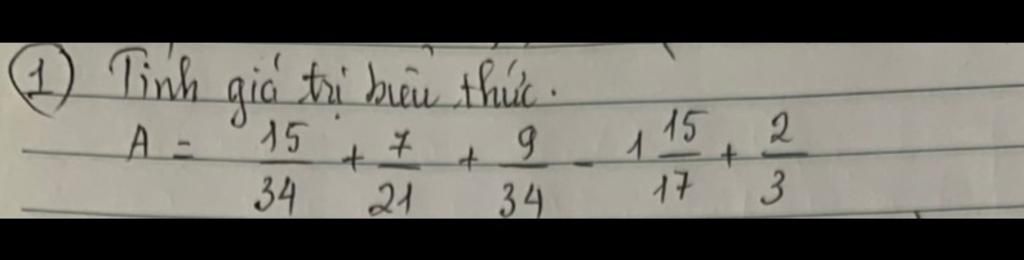 ① Tính giá trị biểu thức.
A = 15/34 + 7/21 + 9/34 - 1 15/17 + 2/3